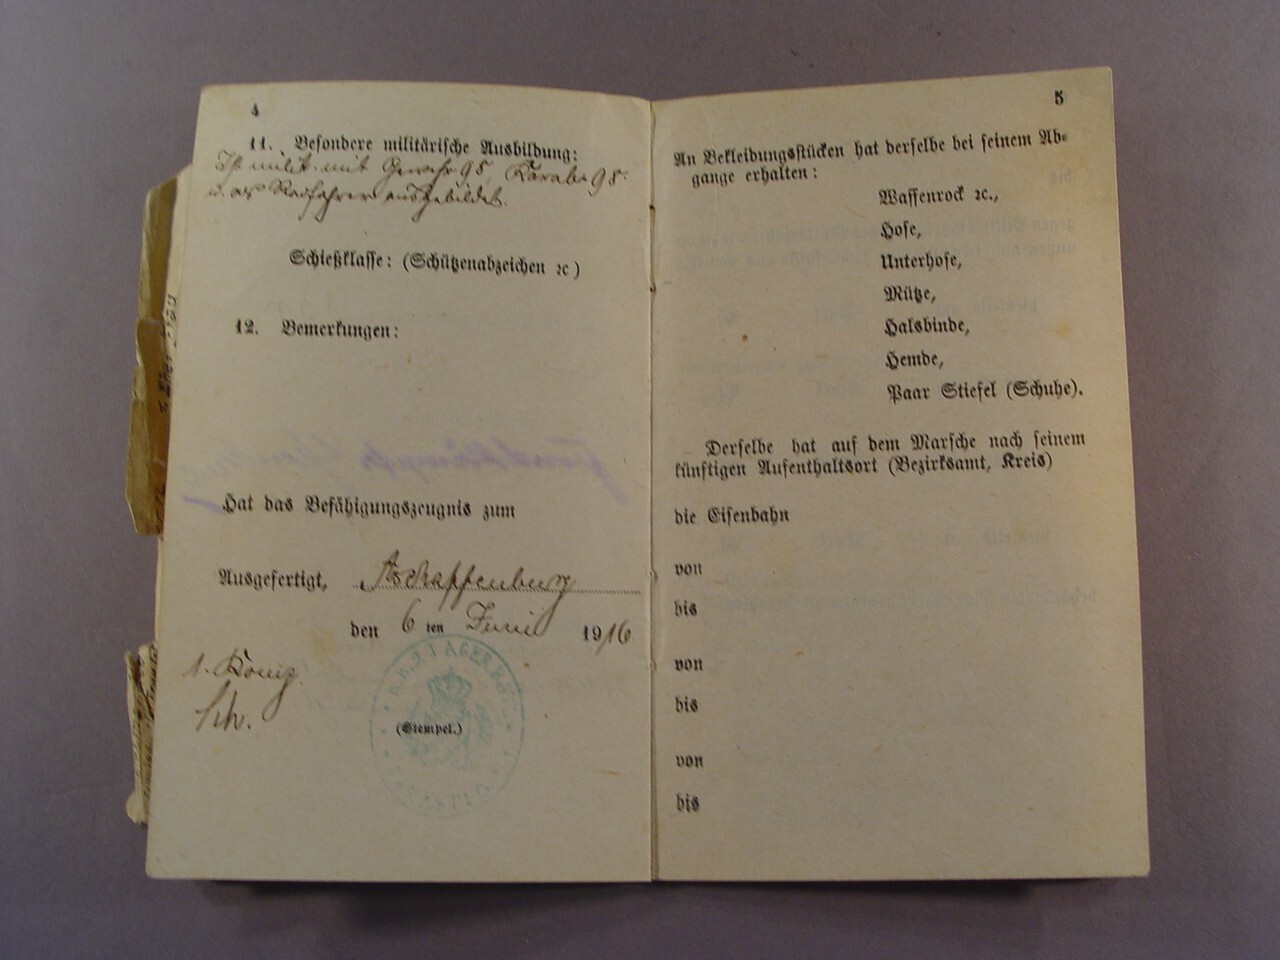 4
11. Besondere militärische Ausbildung:
Ist milit. mit Gewehr 98, Karab. 98
u. als Radfahrer ausgebildet.
Schießklasse: (Schützenabzeichen ꝛc)
12. Bemerkungen:
Hat das Befähigungszeugnis zum
Ausgefertigt, Aschaffenburg
den 6 ten Juni 1916
1. Komp.
Sch.
(Stempel.)
5
An Bekleidungsstücken hat derselbe bei seinem Ab-
gange erhalten:
Waffenrock ꝛc.,
Hose,
Unterhose,
Mütze,
Halsbinde,
Hemde,
Paar Stiefel (Schuhe).
Derselbe hat auf dem Marsche nach seinem
künftigen Aufenthaltsort (Bezirksamt, Kreis)
die Eisenbahn
von
bis
von
bis
von
bis